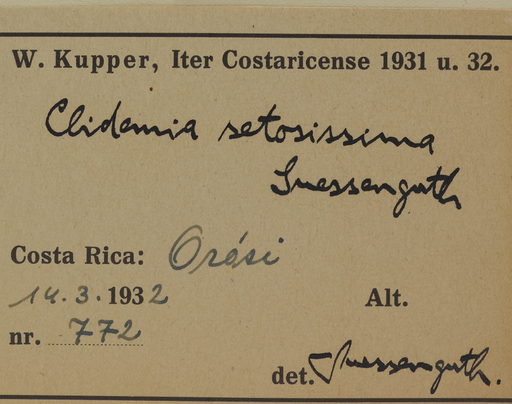 W. Kupper, Iter Costaricense 1931 u. 32.
Clidemia setosissima
Suessenguth
Costa Rica: Orósi
14.3.1932 Alt.
nr. 772
det. Suessenguth.